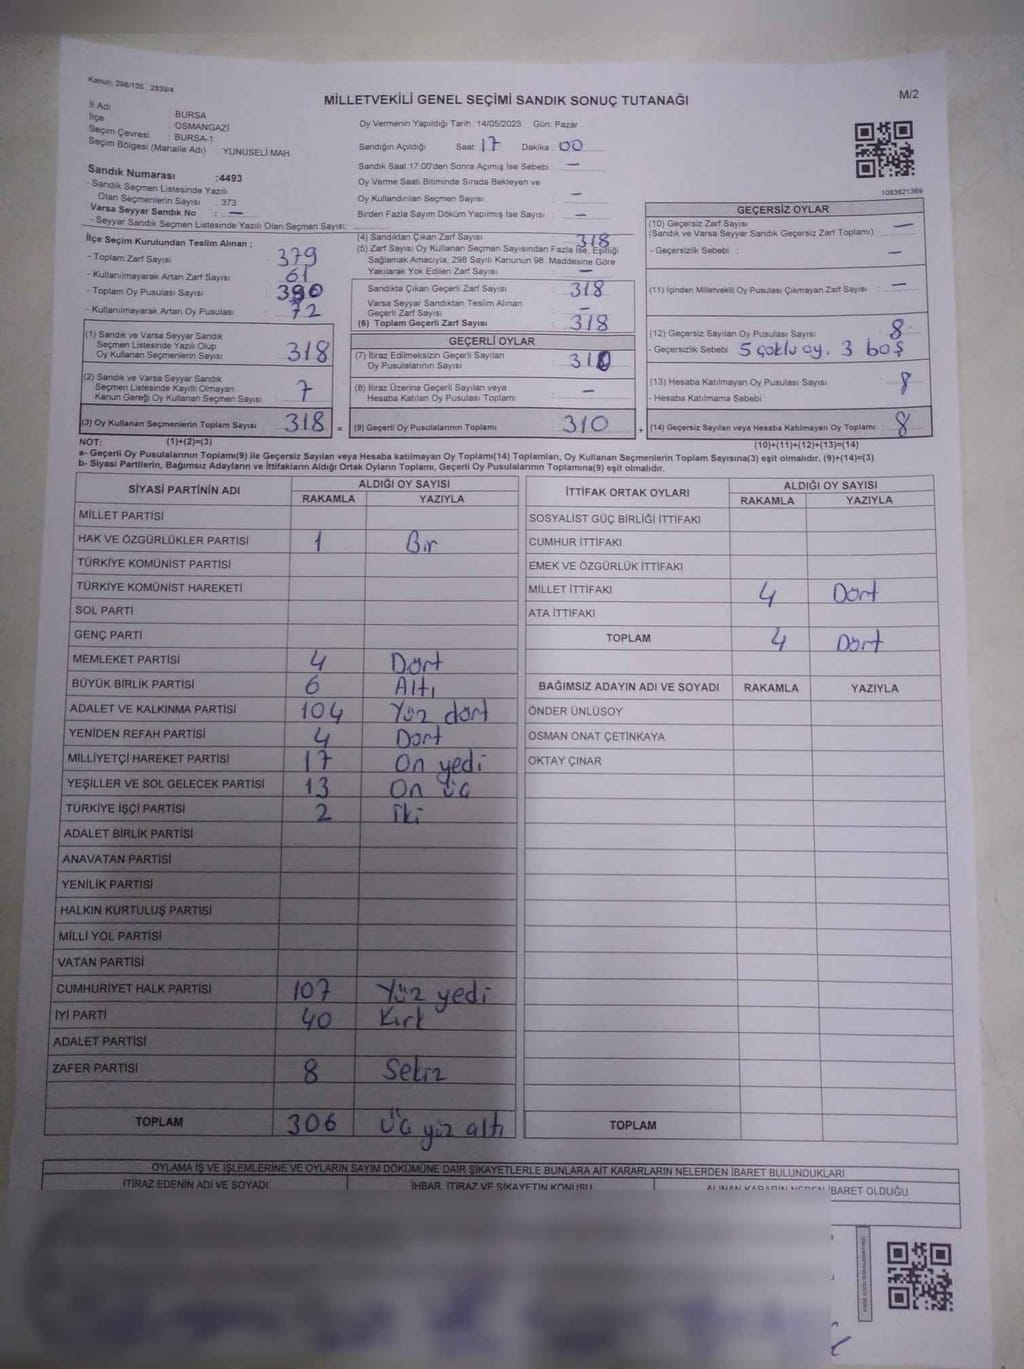 Kanun: 298/105 , 2839/4
MİLLETVEKİLİ GENEL SEÇİMİ SANDIK SONUÇ TUTANAĞI
M/2
İl Adı : BURSA
İlçe : OSMANGAZİ
Seçim Çevresi : BURSA-1
Seçim Bölgesi (Mahalle Adı) : YUNUSELİ MAH.
Sandık Numarası :4493
- Sandık Seçmen Listesinde Yazılı
Olan Seçmenlerin Sayısı : 373
Varsa Seyyar Sandık No : —
- Seyyar Sandık Seçmen Listesinde Yazılı Olan Seçmen Sayısı:
Oy Vermenin Yapıldığı Tarih :14/05/2023 Gün: Pazar
Sandığın Açıldığı Saat: 17 Dakika: 00
Sandık Saat 17:00'den Sonra Açımış İse Sebebi : —
Oy Verme Saati Bitiminde Sırada Bekleyen ve
Oy Kullandırılan Seçmen Sayısı : —
Birden Fazla Sayım Döküm Yapılmış İse Sayısı : —
1083821369
İlçe Seçim Kurulundan Teslim Alınan ;
- Toplam Zarf Sayısı : 379
- Kullanılmayarak Artan Zarf Sayısı : 61
- Toplam Oy Pusulası Sayısı : 390
- Kullanılmayarak Artan Oy Pusulası : 72
(1) Sandık ve Varsa Seyyar Sandık
Seçmen Listesinde Yazılı Olup
Oy Kullanan Seçmenlerin Sayısı : 318
(2) Sandık ve Varsa Seyyar Sandık
Seçmen Listesinde Kayıtlı Olmayan
Kanun Gereği Oy Kullanan Seçmen Sayısı : 7
(3) Oy Kullanan Seçmenlerin Toplam Sayısı : 318 =
(4) Sandıktan Çıkan Zarf Sayısı : 318
(5) Zarf Sayısı Oy Kullanan Seçmen Sayısından Fazla İse, Eşitliği
Sağlamak Amacıyla, 298 Sayılı Kanunun 98. Maddesine Göre
Yakılarak Yok Edilen Zarf Sayısı : —
Sandıkta Çıkan Geçerli Zarf Sayısı : 318
Varsa Seyyar Sandıktan Teslim Alınan
Geçerli Zarf Sayısı : —
(6) Toplam Geçerli Zarf Sayısı : 318
GEÇERLİ OYLAR
(7) İtiraz Edilmeksizin Geçerli Sayılan
Oy Pusulalarının Sayısı : 310
(8) İtiraz Üzerine Geçerli Sayılan veya
Hesaba Katılan Oy Pusulası Toplamı : —
(9) Geçerli Oy Pusulalarının Toplamı : 310 +
GEÇERSİZ OYLAR
(10) Geçersiz Zarf Sayısı
(Sandık ve Varsa Seyyar Sandık Geçersiz Zarf Toplamı) : —
- Geçersizlik Sebebi : —
(11) İçinden Milletvekili Oy Pusulası Çıkmayan Zarf Sayısı : —
(12) Geçersiz Sayılan Oy Pusulası Sayısı : 8
- Geçersizlik Sebebi 5 çoklu oy, 3 boş
(13) Hesaba Katılmayan Oy Pusulası Sayısı : 8
- Hesaba Katılmama Sebebi :
(14) Geçersiz Sayılan veya Hesaba Katılmayan Oy Toplamı : 8
NOT: (1)+(2)=(3)
(10)+(11)+(12)+(13)=(14)
a- Geçerli Oy Pusulalarının Toplamı(9) ile Geçersiz Sayılan veya Hesaba katılmayan Oy Toplamı(14) Toplamları, Oy Kullanan Seçmenlerin Toplam Sayısına(3) eşit olmalıdır. (9)+(14)=(3)
b- Siyasi Partilerin, Bağımsız Adayların ve İttifakların Aldığı Ortak Oyların Toplamı, Geçerli Oy Pusulalarının Toplamına(9) eşit olmalıdır.
SİYASİ PARTİNİN ADI
ALDIĞI OY SAYISI
RAKAMLA YAZIYLA
MİLLET PARTİSİ
HAK VE ÖZGÜRLÜKLER PARTİSİ 1 Bir
TÜRKİYE KOMÜNİST PARTİSİ
TÜRKİYE KOMÜNİST HAREKETİ
SOL PARTİ
GENÇ PARTİ
MEMLEKET PARTİSİ 4 Dört
BÜYÜK BİRLİK PARTİSİ 6 Altı
ADALET VE KALKINMA PARTİSİ 104 Yüz dört
YENİDEN REFAH PARTİSİ 4 Dört
MİLLİYETÇİ HAREKET PARTİSİ 17 On yedi
YEŞİLLER VE SOL GELECEK PARTİSİ 13 On üç
TÜRKİYE İŞÇİ PARTİSİ 2 İki
ADALET BİRLİK PARTİSİ
ANAVATAN PARTİSİ
YENİLİK PARTİSİ
HALKIN KURTULUŞ PARTİSİ
MİLLİ YOL PARTİSİ
VATAN PARTİSİ
CUMHURİYET HALK PARTİSİ 107 Yüz yedi
İYİ PARTİ 40 Kırk
ADALET PARTİSİ
ZAFER PARTİSİ 8 Sekiz
TOPLAM 306 Üç yüz altı
İTTİFAK ORTAK OYLARI
ALDIĞI OY SAYISI
RAKAMLA YAZIYLA
SOSYALİST GÜÇ BİRLİĞİ İTTİFAKI
CUMHUR İTTİFAKI
EMEK VE ÖZGÜRLÜK İTTİFAKI
MİLLET İTTİFAKI 4 Dört
ATA İTTİFAKI
TOPLAM 4 Dört
BAĞIMSIZ ADAYIN ADI VE SOYADI RAKAMLA YAZIYLA
ÖNDER ÜNLÜSOY
OSMAN ONAT ÇETİNKAYA
OKTAY ÇINAR
TOPLAM
OYLAMA İŞ VE İŞLEMLERİNE VE OYLARIN SAYIM DÖKÜMÜNE DAİR ŞİKAYETLERLE BUNLARA AİT KARARLARIN NELERDEN İBARET BULUNDUKLARI
İTİRAZ EDENİN ADI VE SOYADI İHBAR, İTİRAZ VE ŞİKAYETİN KONUSU ALINAN KARARIN NEDEN İBARET OLDUĞU